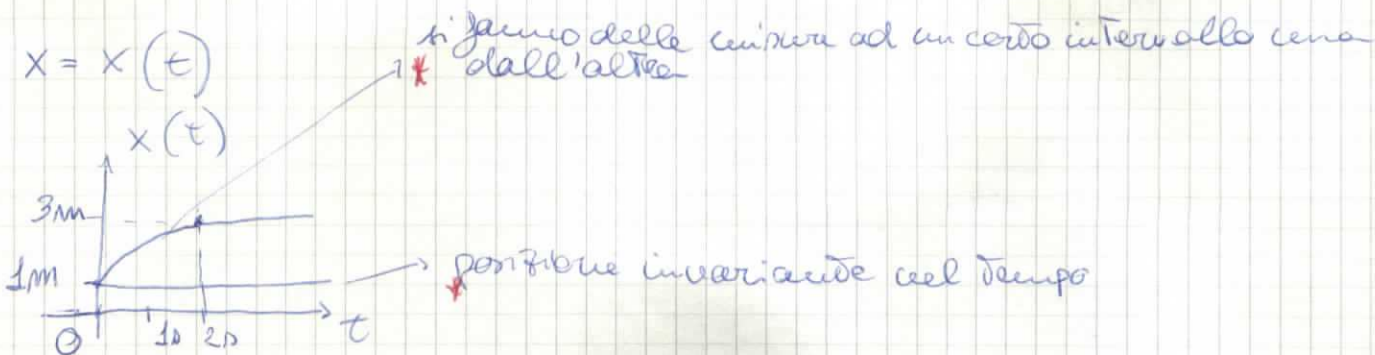 si fanno delle misure ad un certo intervallo una
X = X (t)
* dall'altra
X (t)
3m
1m
* posizione invariante nel tempo
0 1s 2s t